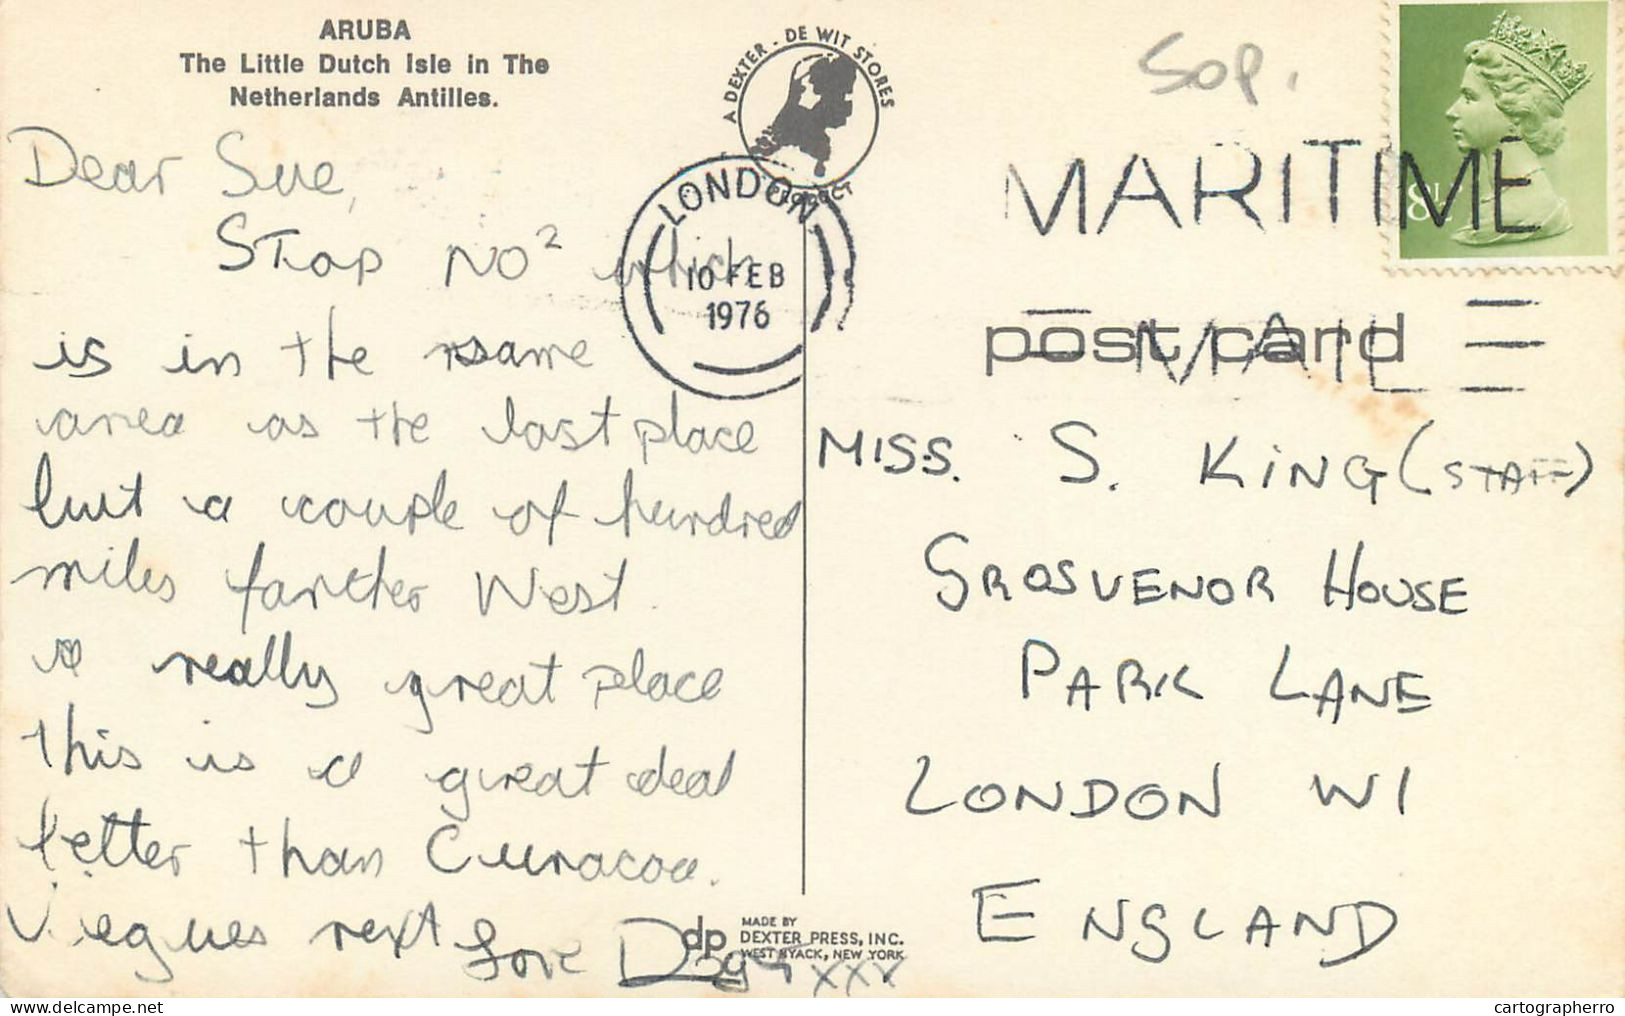 ARUBA
The Little Dutch Isle in The
Netherlands Antilles.
A DEXTER - DE WIT STORES
PRODUCT
50p.
Dear Sue,
Stop NO² which
is in the same
area as the last place
but a couple of hundred
miles farther West.
a really great place
this is a great deal
better than Curacoa.
next
Love
xxx
LONDON
10 FEB
1976
MARITIME
MAIL
8½
post card
MISS. S. KING (STAFF)
GROSVENOR HOUSE
PARK LANE
LONDON W1
ENGLAND
dp
MADE BY
DEXTER PRESS, INC.
WEST NYACK, NEW YORK
cartographerro